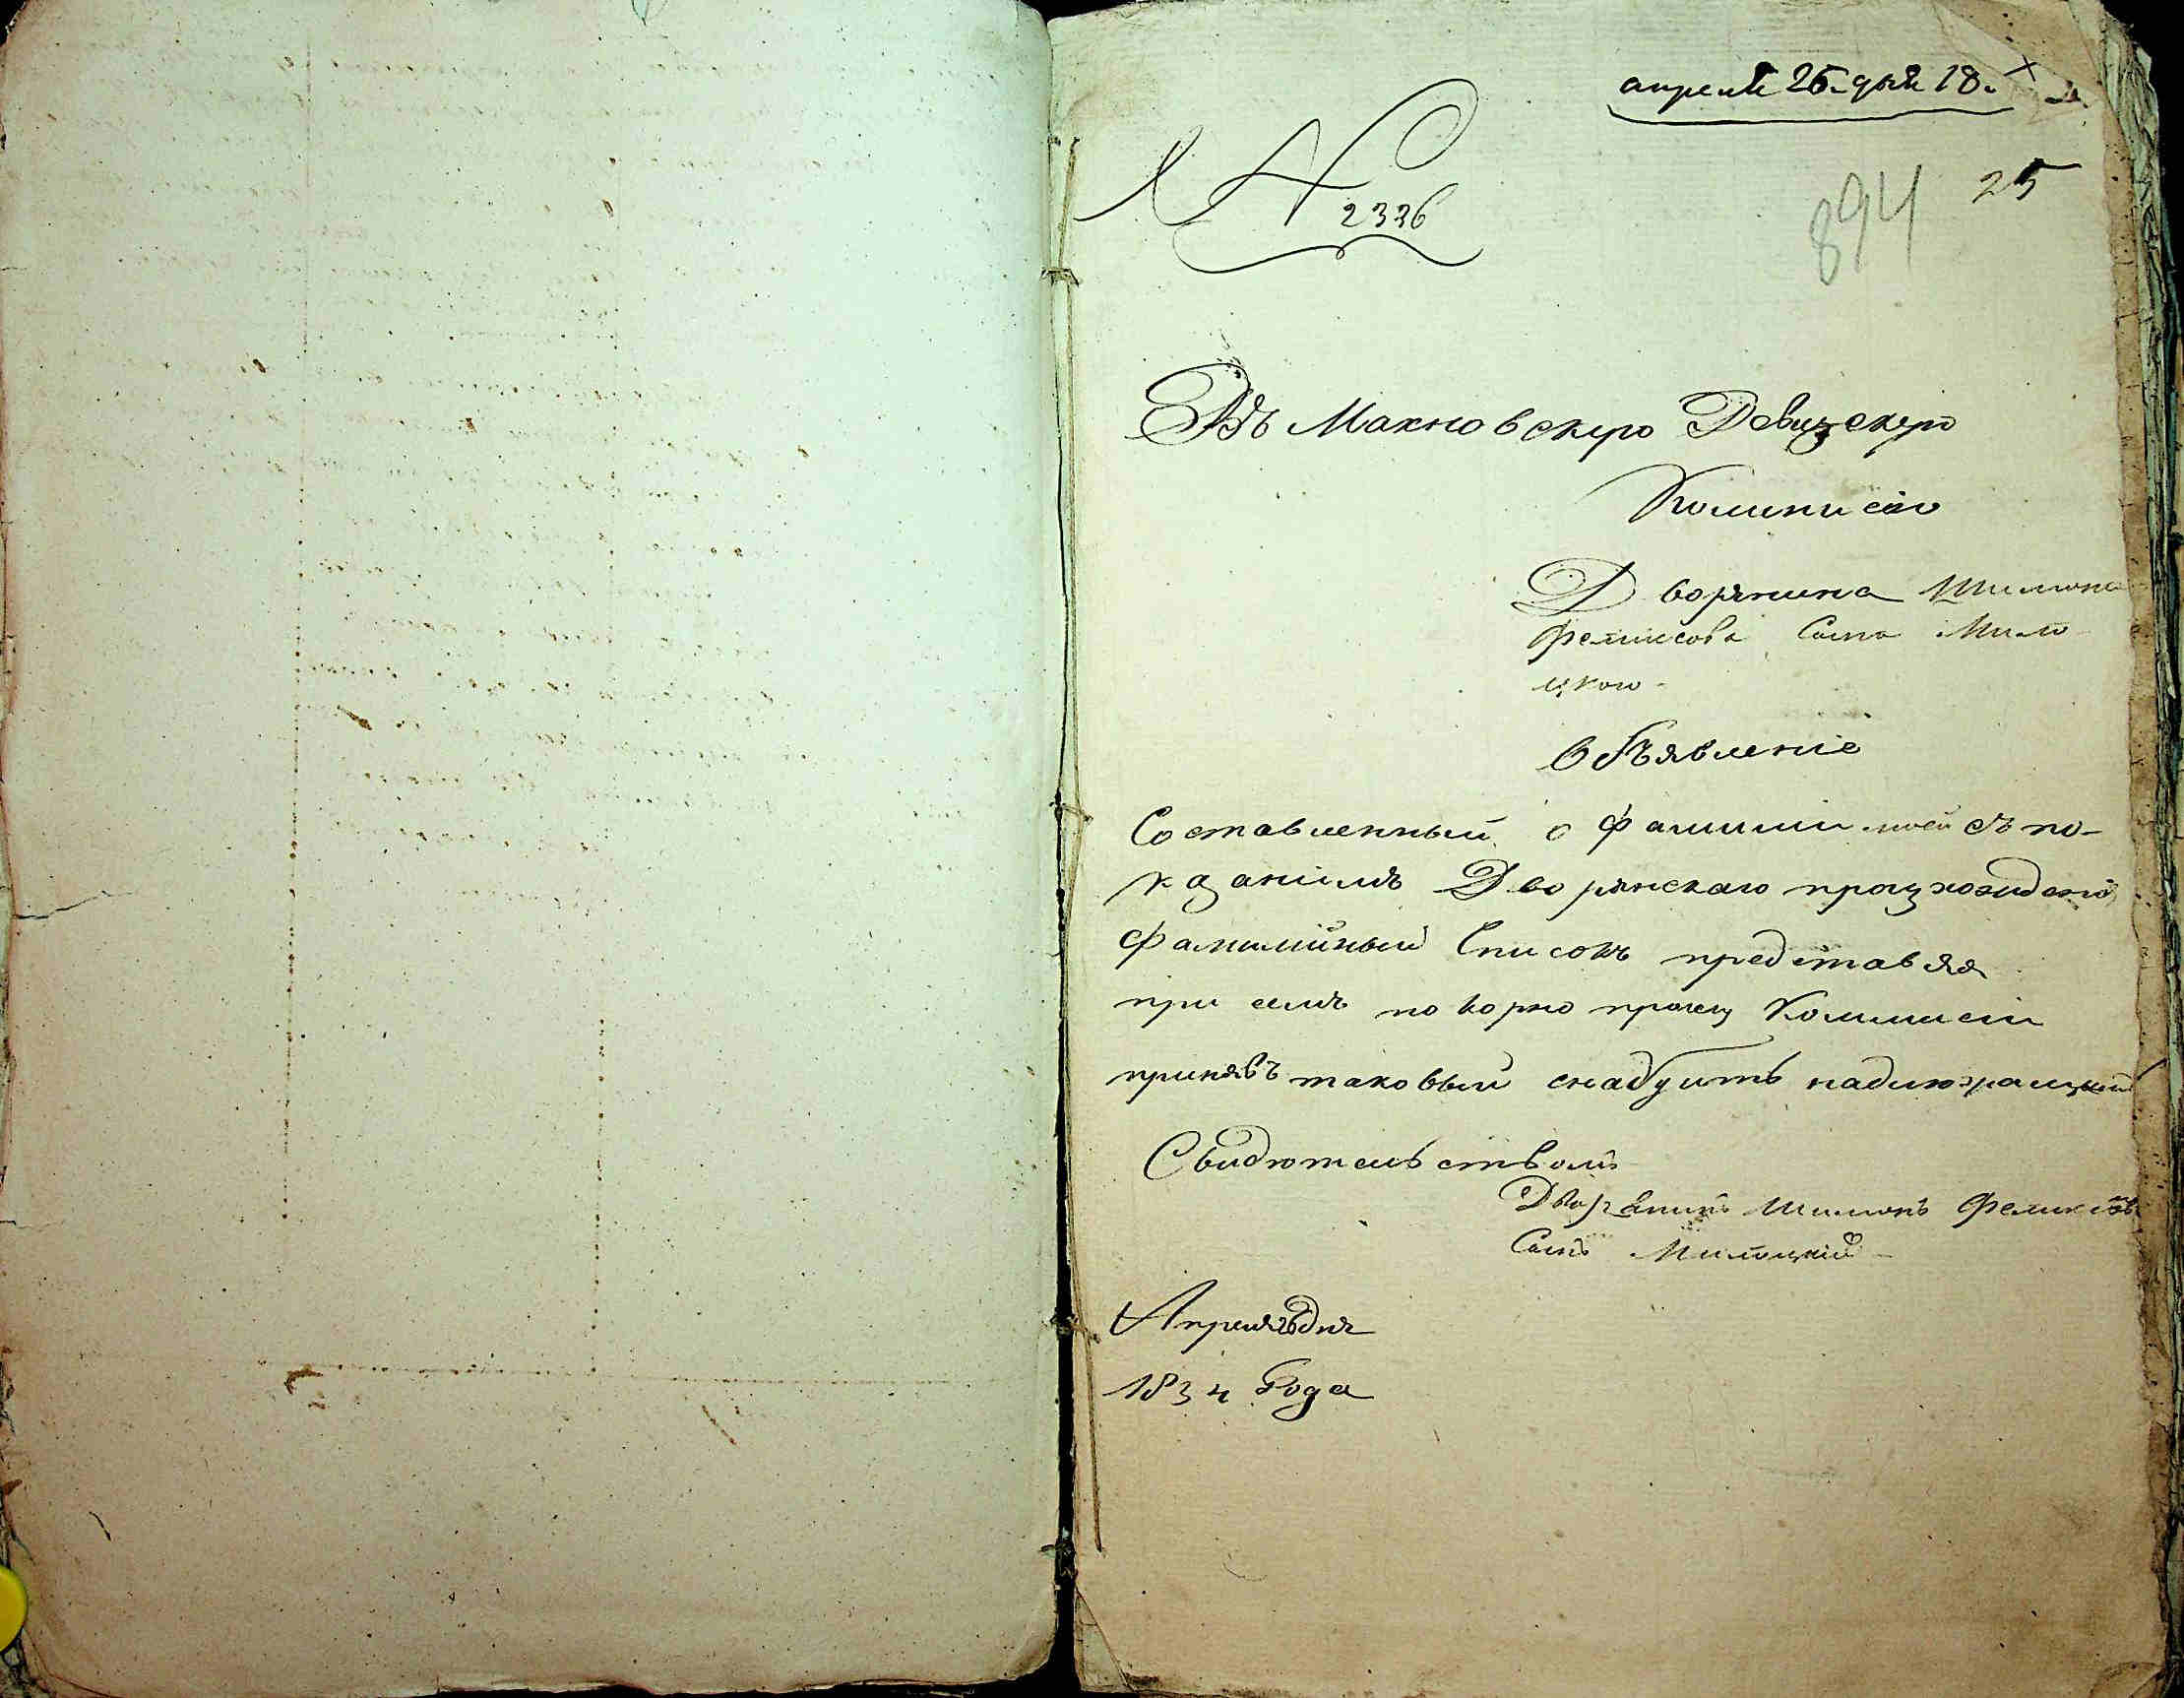 апреля 26. дня 18.
N 2336
25
894
Въ Махновскую Девизскую
Коммисію
Дворянина Шимона
Феликсова Сына Мило
цкого -
Объявленіе
Составленный о фамиліи моей съ по-
казаніемъ Дворянскаго произхожденія
фамилійный Списокъ представляя
при семъ покорно прошу Коммисіи
принявъ таковый снабдить надлежащимъ
Свидетельствомъ
Дворянинъ Шимонъ Феликсовъ
Сынъ Милоцкій
Апреля 26 дня
1834 Года